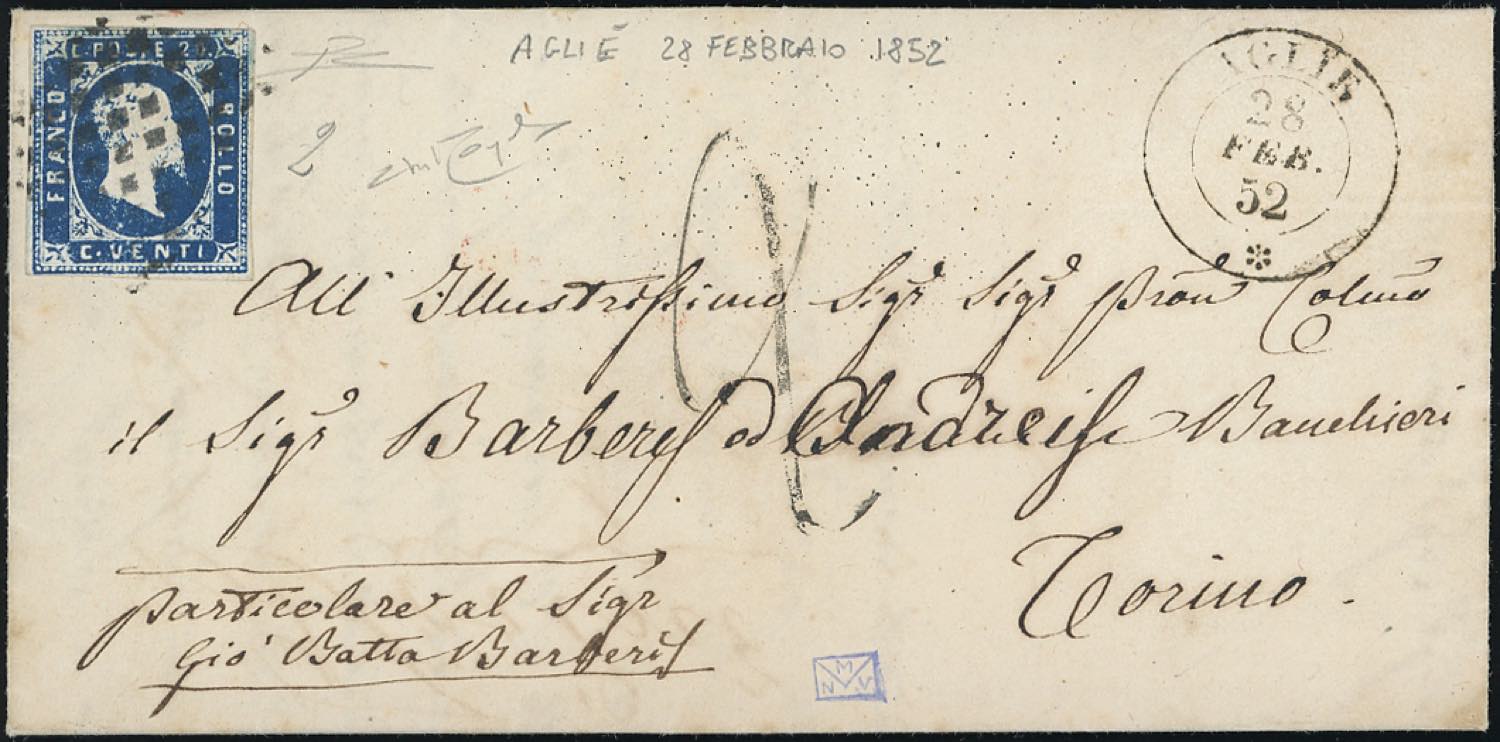 C. POSTE 20.
FRANCO
BOLLO
C. VENTI
AGLIÈ 28 FEBBRAIO 1852
AGLIÈ
28
FEB.
52
2
All' Illustrissimo Sigr Sigr Pron Colmo
il Sigr Barberis ed Andreis Banchieri
Torino.
Particolare al Sigr
Gio' Batta Barberis
M
N V